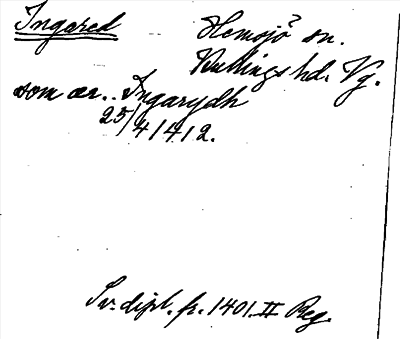 Ingared Hemsjö? sn.
Kullings hd. Vg.
som ær.. Ingarydh
25/4 1412.
Sv. dipl. fr. 1401 II Reg.